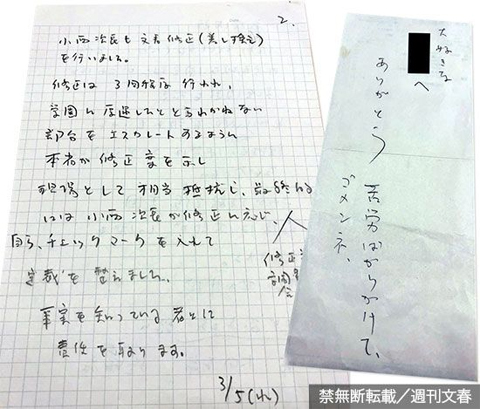 2.
小西次長も文書修正(差し換え)
を行いました。
修正は3回程度行われ、
学園に厚遇したととられかねない
部分を
本省が修正案を示し
現場として相当抵抗し、最終的
には小西次長が修正に応じ、
自ら、チェックマークを入れて
体裁を整えました。
事実を知っている者として
責任を取ります。
3/5(水)
大好きな
へ
ありがとう
苦労ばかりかけて、
ゴメンネ、
禁無断転載/週刊文春